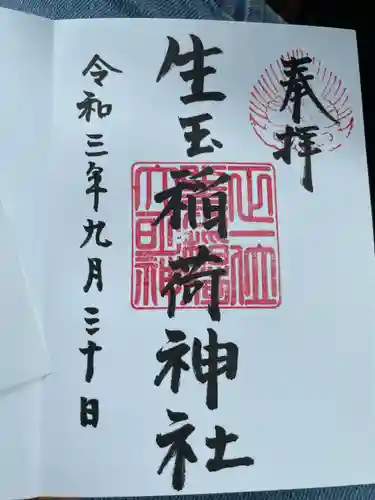 奉拝
生玉稲荷神社
正一位
令和三年九月二十日